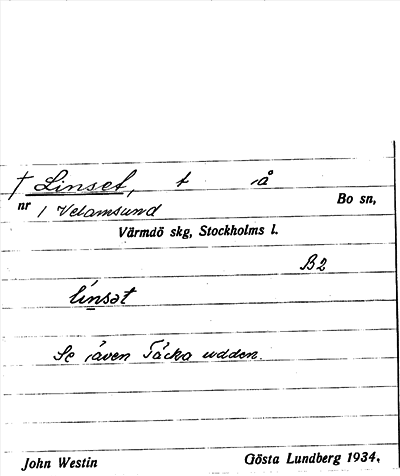 † Linset, t iå
nr 1 Velamsund Bo sn,
Värmdö skg, Stockholms l.
B2
línsət
Se även Täcka udden.
John Westin Gösta Lundberg 1934.